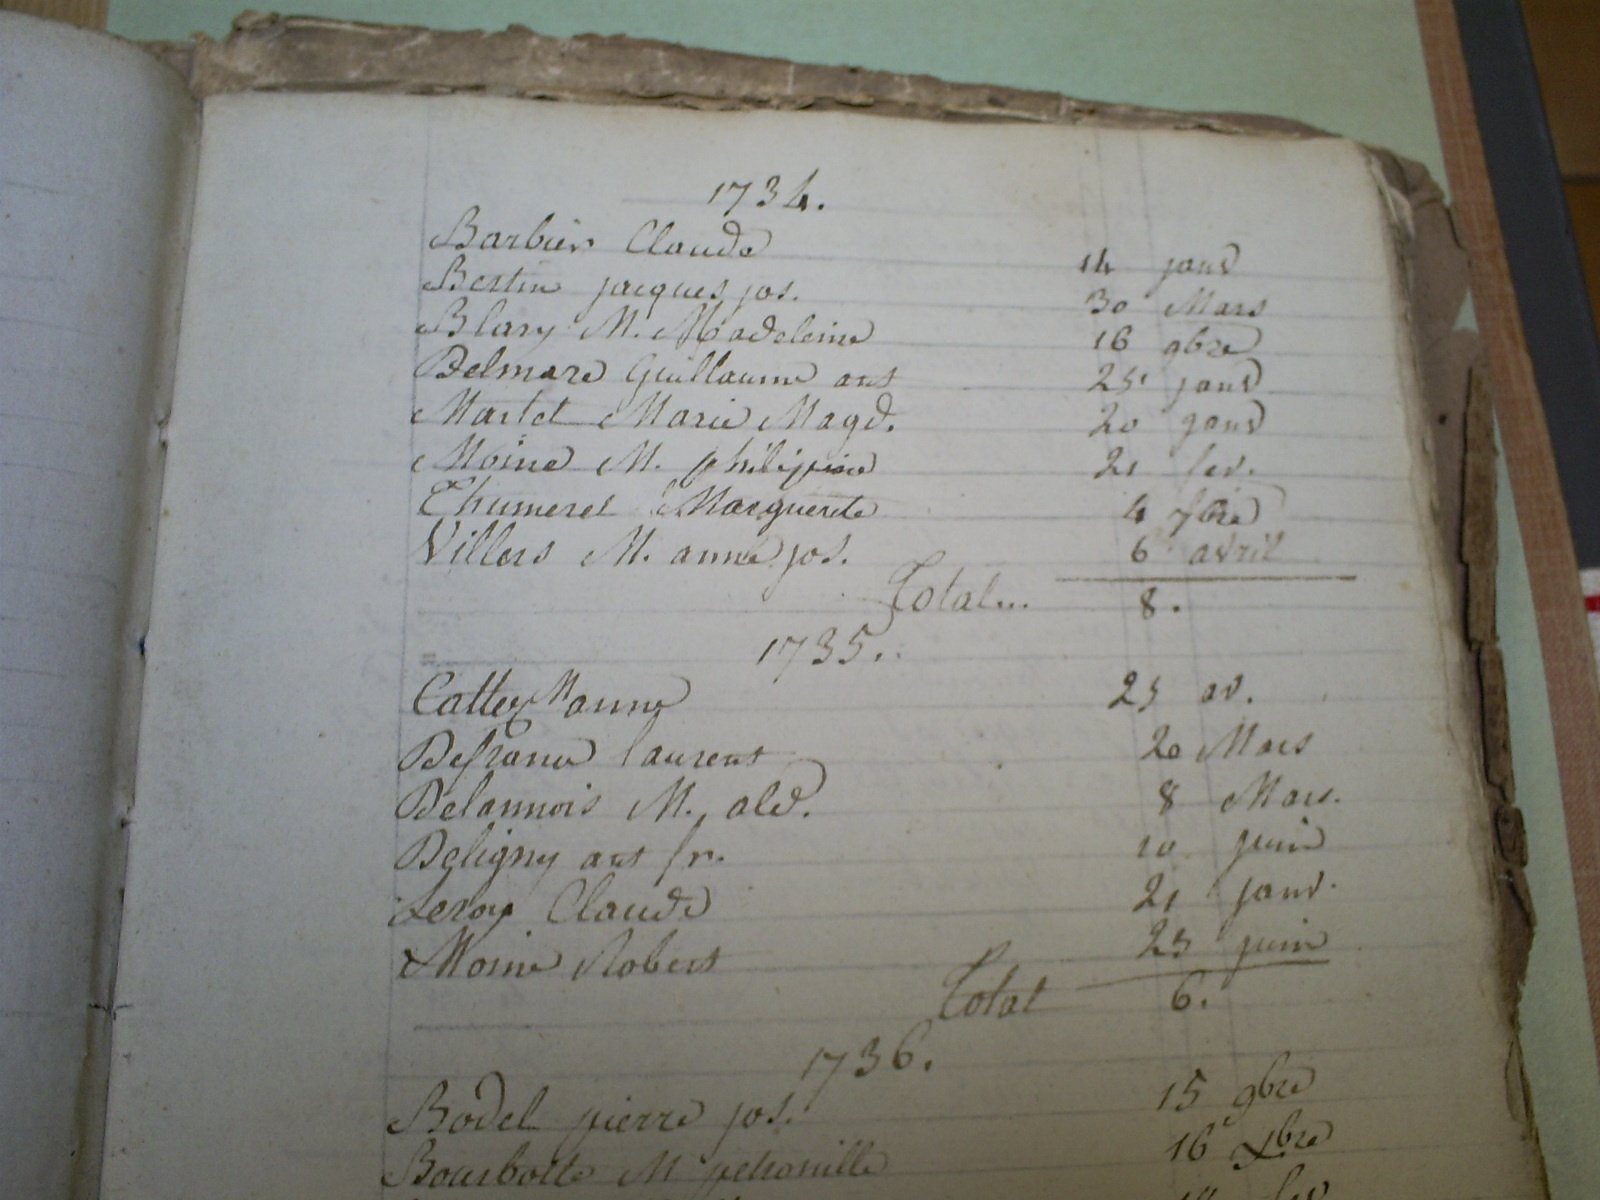 1734.
Barbier Claude 14 janv
Bertin jacques jos. 30 Mars
Blary M. Madeleine 16 9bre
Delmare Guillaume ant 25 janv
Martel Marie Magd. 20 janv
Moine M. philipine 21 fev.
Thumerel Marguerite 4 7bre
Villers M. anne jos. 6 avril
Total... 8.
1735.
Cattez M anne 25 av.
Defrance laurent 20 Mars
Delannois M. ald. 8 Mars.
Deligny ant fr. 10 juin
Leroy Claude 21 janv.
Moine Robert 25 juin
Total 6.
1736.
Bodel pierre jos. 15 9bre
Bourbotte M petronille 16 Xbre
fev